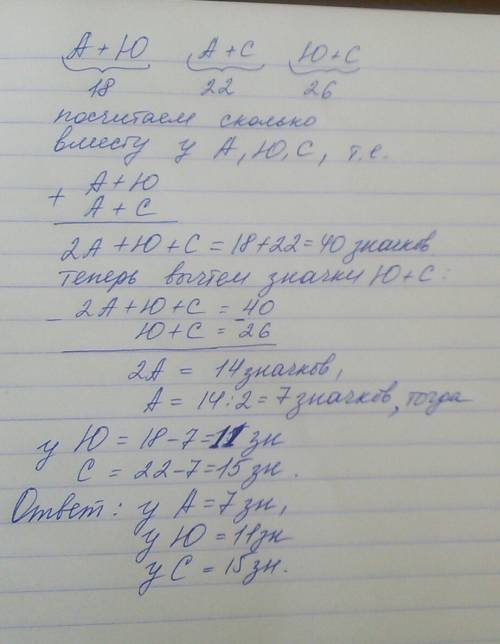 А + Ю А + С Ю + С
18 22 26
посчитаем сколько
вместу у А, Ю, С, т.е.
+ А + Ю
А + С
2А + Ю + С = 18 + 22 = 40 значков
теперь вычтем значки Ю + С :
- 2А + Ю + С = - 40
Ю + С = 26
2А = 14 значков,
А = 14 : 2 = 7 значков, тогда
у Ю = 18 - 7 = 11 зн
С = 22 - 7 = 15 зн.
Ответ: у А = 7 зн,
у Ю = 11 зн
у С = 15 зн.